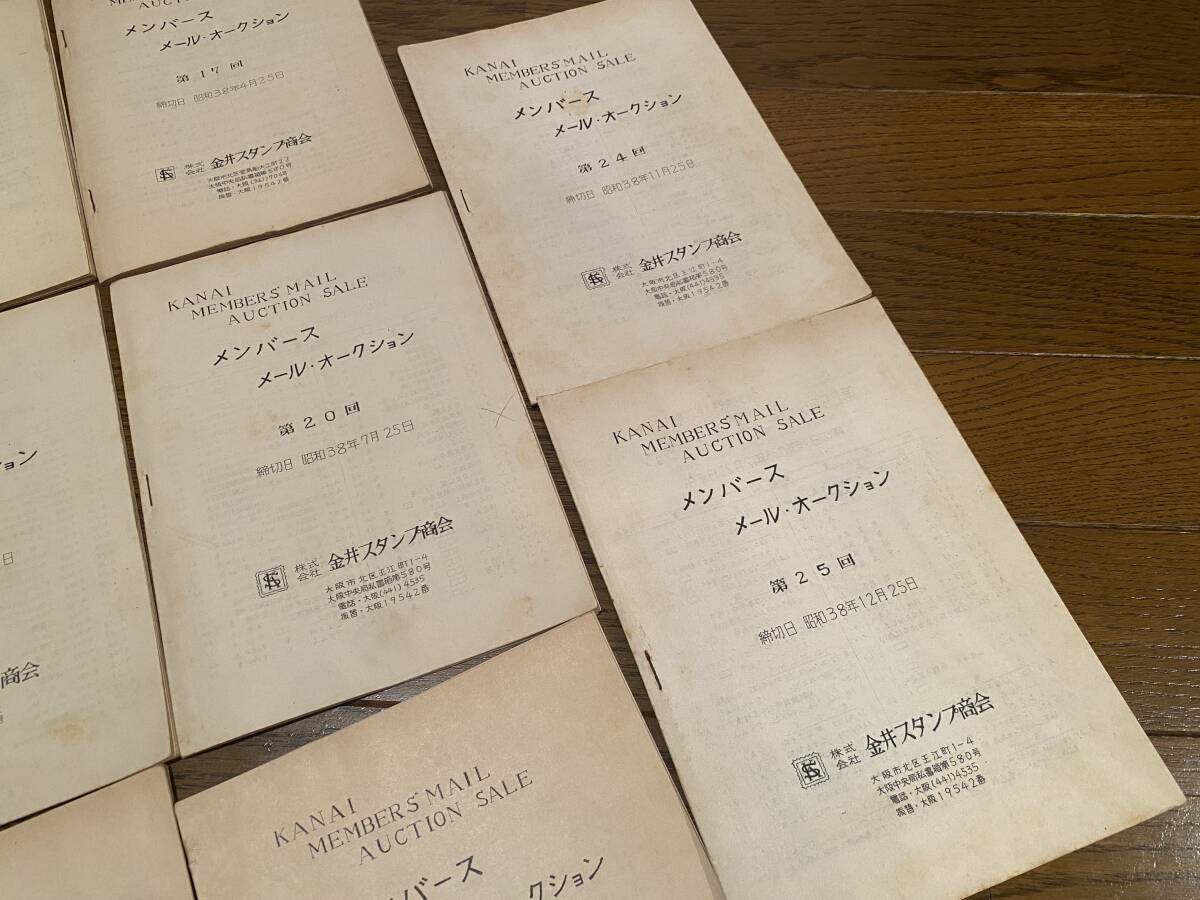 MEMBERS' MAIL
AUCTION SALE
メンバース
メール・オークション
第17回
締切日 昭和38年4月25日
株式会社 金井スタンプ商会
大阪中央局私書箱第580号
振替・大阪19542番
KANAI
MEMBERS' MAIL
AUCTION SALE
メンバース
メール・オークション
第24回
締切日 昭和38年11月25日
株式会社 金井スタンプ商会
大阪市北区玉江町1-4
大阪中央局私書箱第580号
電話・大阪(441)4535
振替・大阪19542番
KANAI
MEMBERS' MAIL
AUCTION SALE
メンバース
メール・オークション
第20回
締切日 昭和38年7月25日
株式会社 金井スタンプ商会
大阪市北区玉江町1-4
大阪中央局私書箱第580号
電話・大阪(441)4535
振替・大阪19542番
KANAI
MEMBERS' MAIL
AUCTION SALE
メンバース
メール・オークション
第25回
締切日 昭和38年12月25日
株式会社 金井スタンプ商会
大阪市北区玉江町1-4
大阪中央局私書箱第580号
電話・大阪(441)4535
振替・大阪19542番
ション
日
商会
KANAI
MEMBERS' MAIL
AUCTION SALE
ンバース
クション